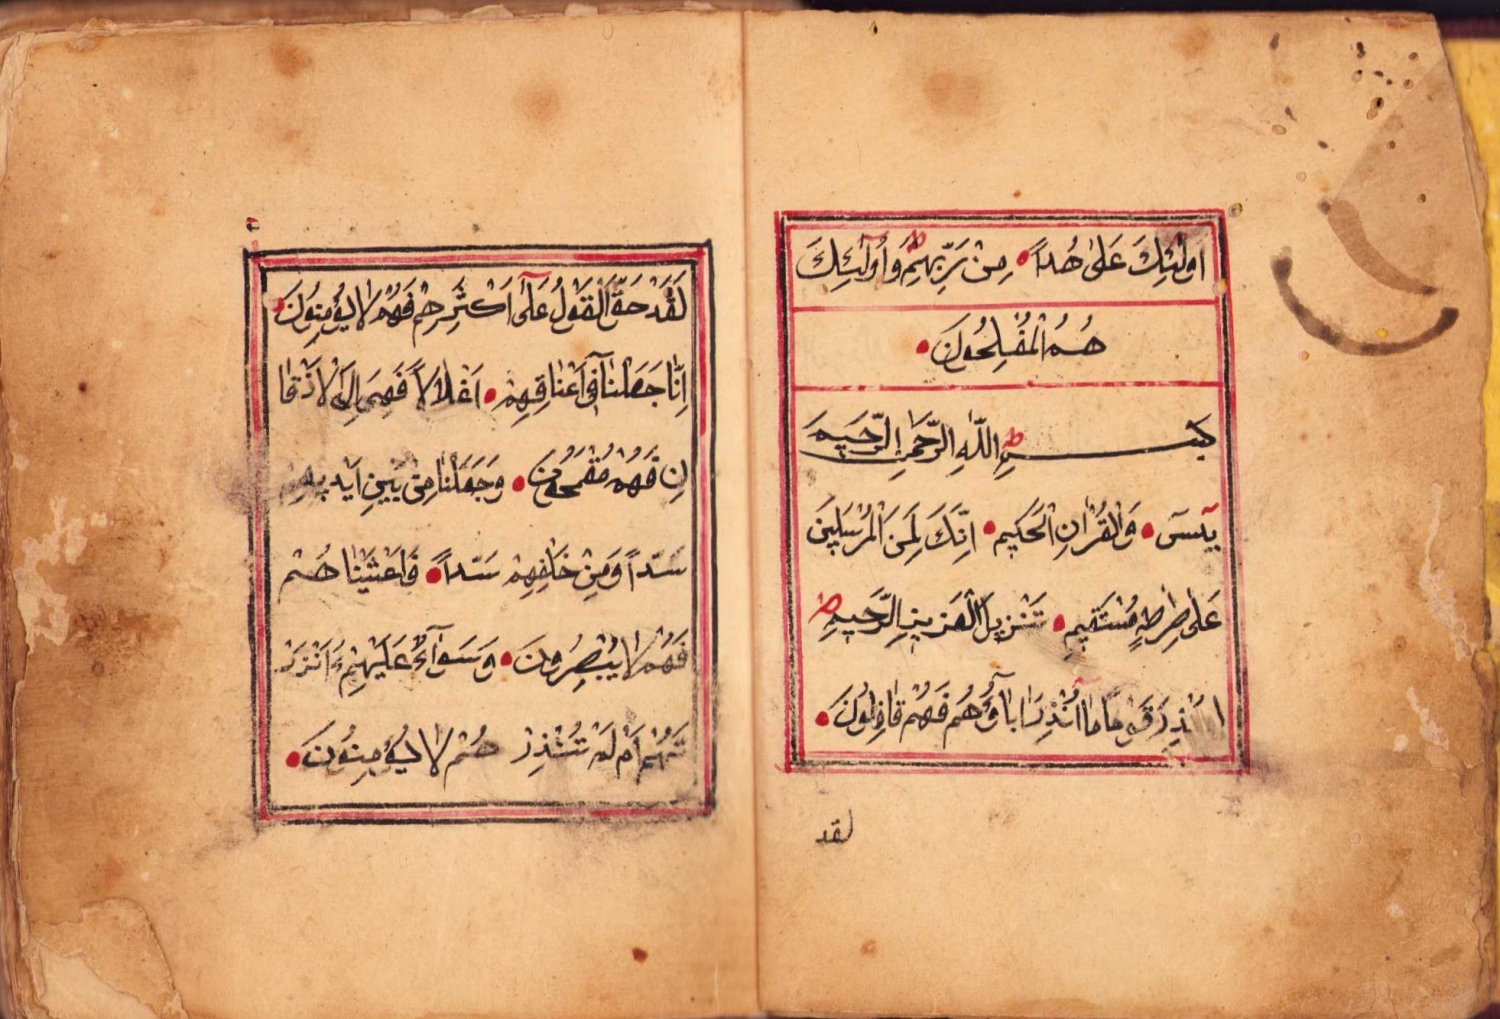 اُولٰٓئِكَ عَلٰى هُداً مِنْ رَبِّهِمْ وَاُولٰٓئِكَ
هُمُ الْمُفْلِحُونَ
بِسْمِ اللّٰهِ الرَّحْمٰنِ الرَّحِيمِ
يٰسٓ وَالْقُرْاٰنِ الْحَكِيمِ اِنَّكَ لَمِنَ الْمُرْسَلِينَ
عَلٰى صِرٰطٍ مُسْتَقِيمٍ تَنْزِيلَ الْعَزِيزِ الرَّحِيمِ
قَوْمًا مَا اُنْذِرَ اٰبَآؤُهُمْ فَهُمْ غَافِلُونَ
لقد
لَقَدْ حَقَّ الْقَوْلُ عَلٰٓى اَكْثَرِهِمْ فَهُمْ لَا يُؤْمِنُونَ
اِنَّا جَعَلْنَا فِٓى اَعْنَاقِهِمْ اَغْلَالاً فَهِىَ اِلَى الْاَذْقَا
نِ فَهُمْ مُقْمَحُونَ وَجَعَلْنَا مِنْ بَيْنِ اَيْدِيهِمْ
سَدّاً وَمِنْ خَلْفِهِمْ سَدّاً فَاَغْشَيْنَا هُمْ
فَهُمْ لَا يُبْصِرُونَ وَسَوَآءٌ عَلَيْهِمْ ءَاَنْذَرْ
تَهُمْ اَمْ لَمْ تُنْذِرْ هُمْ لَا يُؤْمِنُونَ